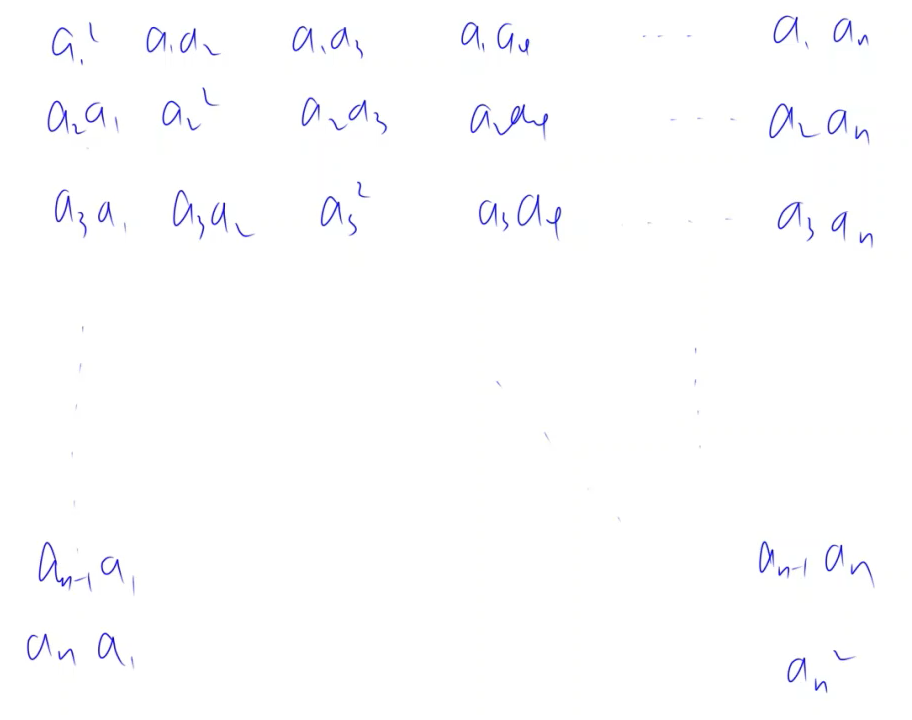 a₁² a₁a₂ a₁a₃ a₁a₄ ... a₁ aₙ
a₂a₁ a₂² a₂a₃ a₂a₄ ... a₂ aₙ
a₃a₁ a₃a₂ a₃² a₃a₄ ... a₃ aₙ
aₙ₋₁a₁ aₙ₋₁ aₙ
aₙ a₁ aₙ²